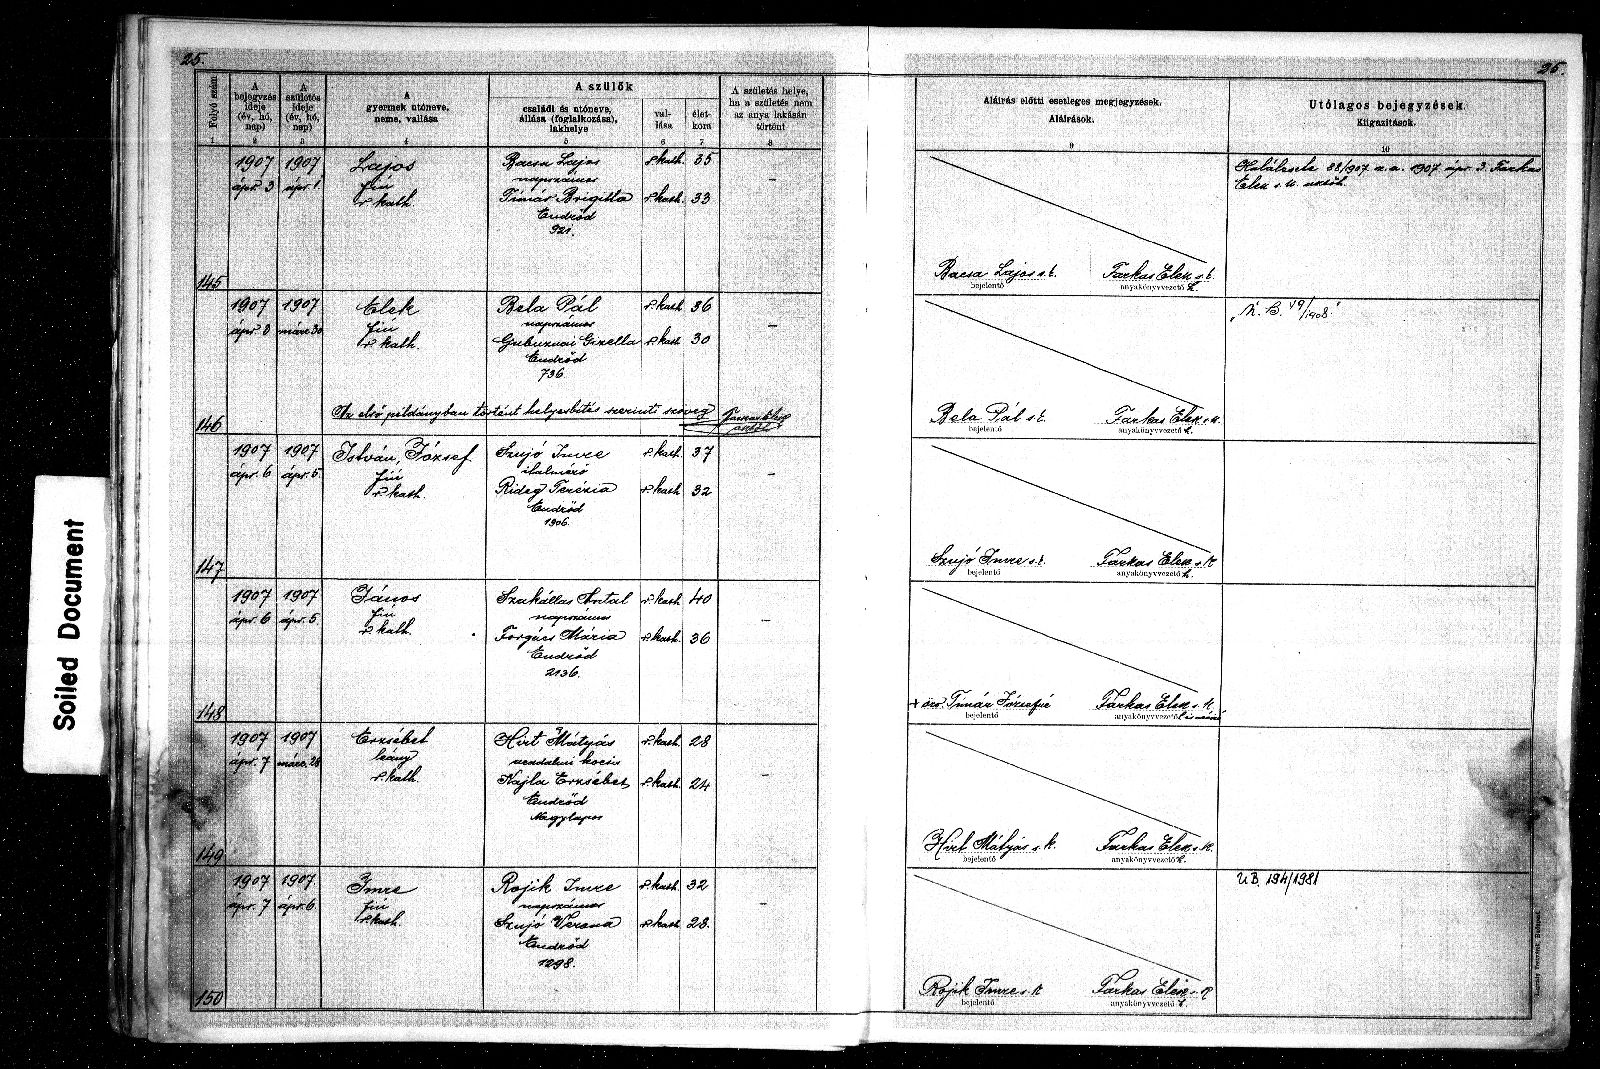 25.
25.
Folyó szám
A bejegyzés ideje (év, hó, nap)
A születés ideje (év, hó, nap)
A gyermek utóneve, neme, vallása
A szülők
családi és utóneve, állása (foglalkozása), lakhelye
vallása
életkora
A születés helye, ha a születés nem az anya lakásán történt
Aláírás előtti esetleges megjegyzések.
Aláírások.
Utólagos bejegyzések.
Kiigazítások.
1 2 3 4 5 6 7 8 9 10
145
1907 ápr. 3
1907 ápr. 1
Lajos
fiú
r. kath.
Bacsa Lajos r. kath. 35
napszámos
Timár Brigitta r. kath. 33
Endrőd
921.
–
Bacsa Lajos s. k.
bejelentő
Farkas Elek s. k.
anyakönyvvezető h.
88/1907 1907 ápr. 3. Farkas
Elek s. k.
146
1907 ápr. 3
1907 márc. 30
Elek
fiú
r. kath.
Bela Pál r. kath. 36
napszámos
Gubuznai Gizella r. kath. 30
Endrőd
736.
–
Az első példányban történt helyesbítés szerinti szöveg
Bela Pál s. k.
bejelentő
Farkas Elek s. k.
anyakönyvvezető h.
49/1908.
147
1907 ápr. 6
1907 ápr. 5.
István, József
fiú
r. kath.
Szujó Imre r. kath. 37
italmérő
Rideg Terézia r. kath. 32
Endrőd
1906.
–
Szujó Imre s. k.
bejelentő
Farkas Elek s. k.
anyakönyvvezető h.
148
1907 ápr. 6
1907 ápr. 5.
János
fiú
r. kath.
Szakállas Antal r. kath. 40
napszámos
Forgács Mária r. kath. 36
Endrőd
2136.
–
+ özv. Timár Józsefné
bejelentő
Farkas Elek s. k.
anyakönyvvezető h.
149
1907 ápr. 7
1907 márc. 28
Erzsébet
leány
r. kath.
Hirt Mátyás r. kath. 28
uradalmi kocsis
Najla Erzsébet r. kath. 24
Endrőd
Nagylapos
–
Hirt Mátyás s. k.
bejelentő
Farkas Elek s. k.
anyakönyvvezető h.
150
1907 ápr. 7
1907 ápr. 6.
Imre
fiú
r. kath.
Rojik Imre r. kath. 32
napszámos
Szujó Verona r. kath. 28.
Endrőd
1298.
–
Rojik Imre s. k.
bejelentő
Farkas Elek s. k.
anyakönyvvezető h.
U.B. 194/1981
Soiled Document